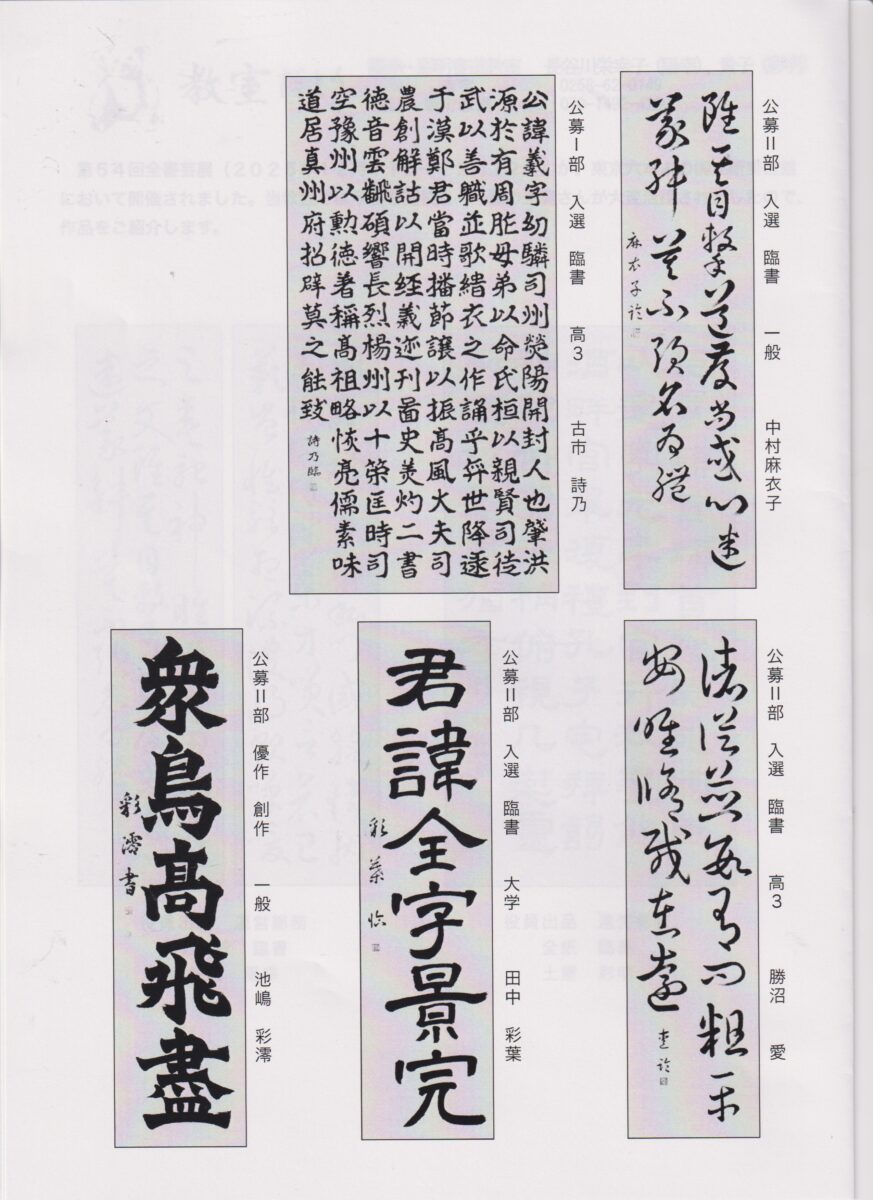 公募Ⅱ部 入選 臨書 一般 中村麻衣子
雖其目擊道存尚或心迷
議舛莫不強名為體
麻衣子臨
公募Ⅰ部 入選 臨書 高3 古市 詩乃
公諱羲字幼驎司州熒陽開封人也肇洪
源於有周胙母弟以命氏桓以親賢司徒
武以善職並歌緇衣之作誦乎羿世降逮
于漠鄭君當時播節讓以振髙風大夫司
農創解詁以開経義迹刊圖史美灼二書
徳音雲飜碩響長烈楊州以十策匡時司
空豫州以勲徳著稱髙祖略恢亮儒素味
道居真州府招辟莫之能致
詩乃臨
公募Ⅱ部 入選 臨書 高3 勝沼 愛
諸從並數有問粗平
安唯脩載在遠
愛臨
公募Ⅱ部 入選 臨書 大学 田中 彩葉
君諱全字景完
彩葉臨
公募Ⅱ部 優作 創作 一般 池嶋 彩澪
衆鳥髙飛盡
彩澪書